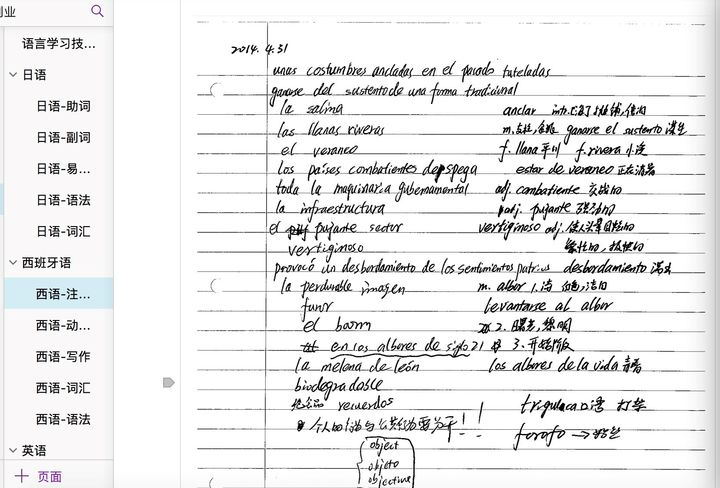 创业
语言学习技...
日语
日语-助词
日语-副词
日语-易...
日语-语法
日语-词汇
西班牙语
西语-注...
西语-动...
西语-写作
西语-词汇
西语-语法
英语
页面
2014. 4.31
unas costumbres ancladas en el pasado tuteladas
ganarse del sustento de una forma tradicional
la salina anclar intr.
las llanas riveras m. ganarse el sustento 谋生
el veraneo f. llana 平川 f. rivera 小溪
los países combatientes despega estar de veraneo 正在消暑
toda la maquinaria gubernamental adj. combatiente 交战的
la infraestructura adj. pujante 强劲的
el pujante sector vertiginoso adj. 使人头晕目眩的
vertiginoso
provocó un desbordamiento de los sentimientos patrios desbordamiento 溢出
la perdurable imagen m. albor 1.
furor levantarse al albor
el boom 2. 曙光, 黎明
en los albores de siglo 21 3.
la melena de león los albores de la vida 青春
biodegradable
纪念品 recuerdos
个人的 !!
object
objeto
objective
forofo →